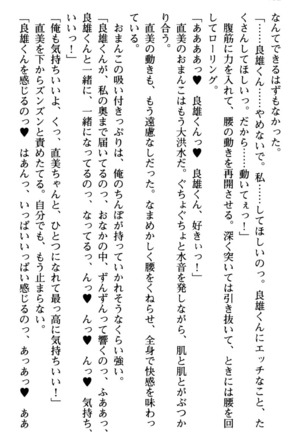 なんてできるはずもなかった。
「な、なんで……良雄くん……やめないで。私……してほしいのっ。良雄くんにエッチなこと、た
くさんしてほしいのっ。だから……動いてぇっ！」
腹筋に力を入れて、腰の動きを再開させる。深く突いては引き抜いて、ときには腰を回
してローリング。
「ああああっ♥ 良雄くんっ♥ 良雄くん、好きぃっ！」
直美のおまんこはもう大洪水だ。ぐちょぐちょと水音を発しながら、肌と肌とがぶつか
り合う。
直美の動きも、もう遠慮なしだった。なまめかしく腰をくねらせ、全身で快感を味わっ
ている。
おまんこの吸い付きっぷりは、俺のちんぽが持っていかれそうなくらい強い。
「良雄くんが、私の奥まで届いてるのっ、おなかの中、ずんずんって響くのっ、ふああっ、
良雄くんと一緒に、一緒になってるのっ、なってるっ、んっ♥ んっ♥ んっ♥ 気持ち、
いいっ！」
「俺も気持ちいいよ、くっ、直美ちゃんと、ひとつになれて最っ高に気持ちいい！」
直美を下からズンズンと責めたてる。自分でも、もう止まらない。
「良雄くんを感じるのっ♥ はあんっ、いっぱいいっぱい感じるのっ、あっあっ♥ ああ